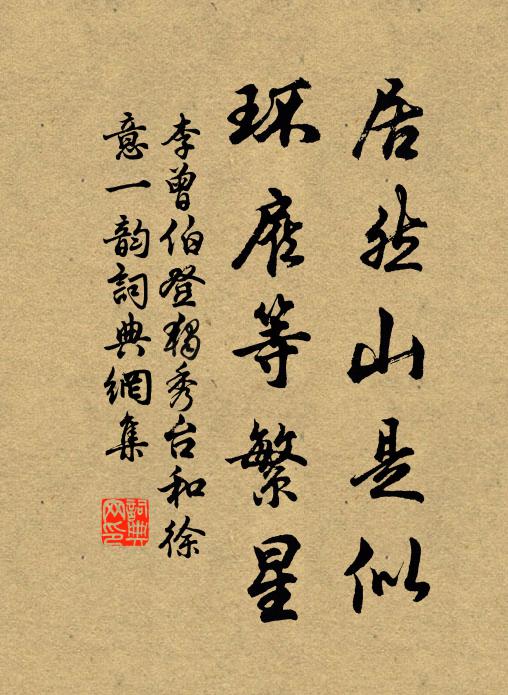 居然山是似
环廊等繁星
李曾伯登独秀台和徐
意一韵词典網集
詞典
网印